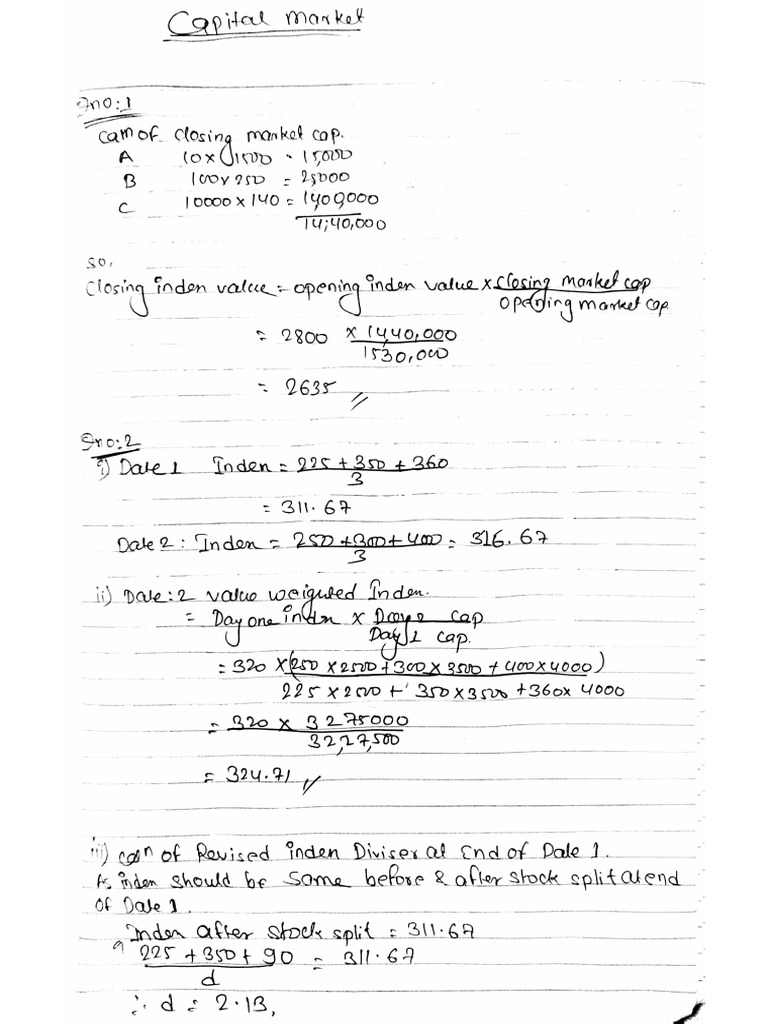 Capital market
Qno:1
Caln of closing market cap.
A 10 x 1500 = 15,000
B 100 x 250 = 25000
C 10000 x 140 = 1400000
14,40,000
so,
Closing inden value = opening inden value x closing market cap
opening market cap
= 2800 x 1,440,000
1530,000
= 2635
Qno:2
i) Date 1 Inden = 225 + 350 + 360
3
= 311.67
Date 2 : Inden = 250 + 300 + 400 = 316.67
3
ii) Date:2 value weighted Inden.
= Day one inden x Day 2 cap
Day 1 cap.
= 320 x (250 x 2500 + 300 x 3500 + 400 x 4000)
225 x 2500 + 350 x 3500 + 360 x 4000
= 320 x 3275000
32,27,500
= 324.71
iii) caln of Revised inden Diviser at End of Date 1.
As inden should be same before & after stock split at end
of Date 1.
Inden after stock split = 311.67
225 + 350 + 90 = 311.67
d
∴ d = 2.13,